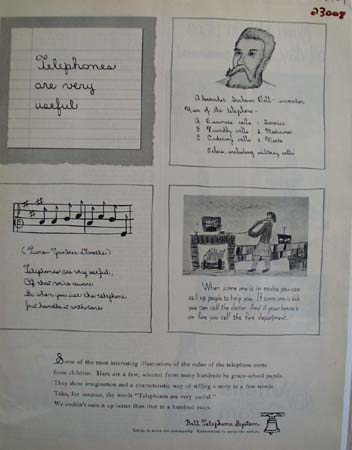 23008
Telephones
are very
useful
Alexander Graham Bell - inventor
Uses of the telephone -
A Business calls 1 Groceries
B Friendly calls 2 Medicines
C Ordering calls 3 Meats
Others, including military calls
(Tune - Yankee Doodle)
Telephones are very useful,
Of that we're aware
So when you use the telephone
Just handle it with care
When some one is in trouble you can
call up people to help you. If some one is sick
you can call the doctor. And if your house is
on fire you call the fire department.
Some of the most interesting illustrations of the value of the telephone come
from children. Here are a few, selected from many hundreds by grade-school pupils.
They show imagination and a characteristic way of telling a story in a few words.
Take, for instance, the words "Telephones are very useful."
We couldn't sum it up better than that in a hundred years.
Bell Telephone System